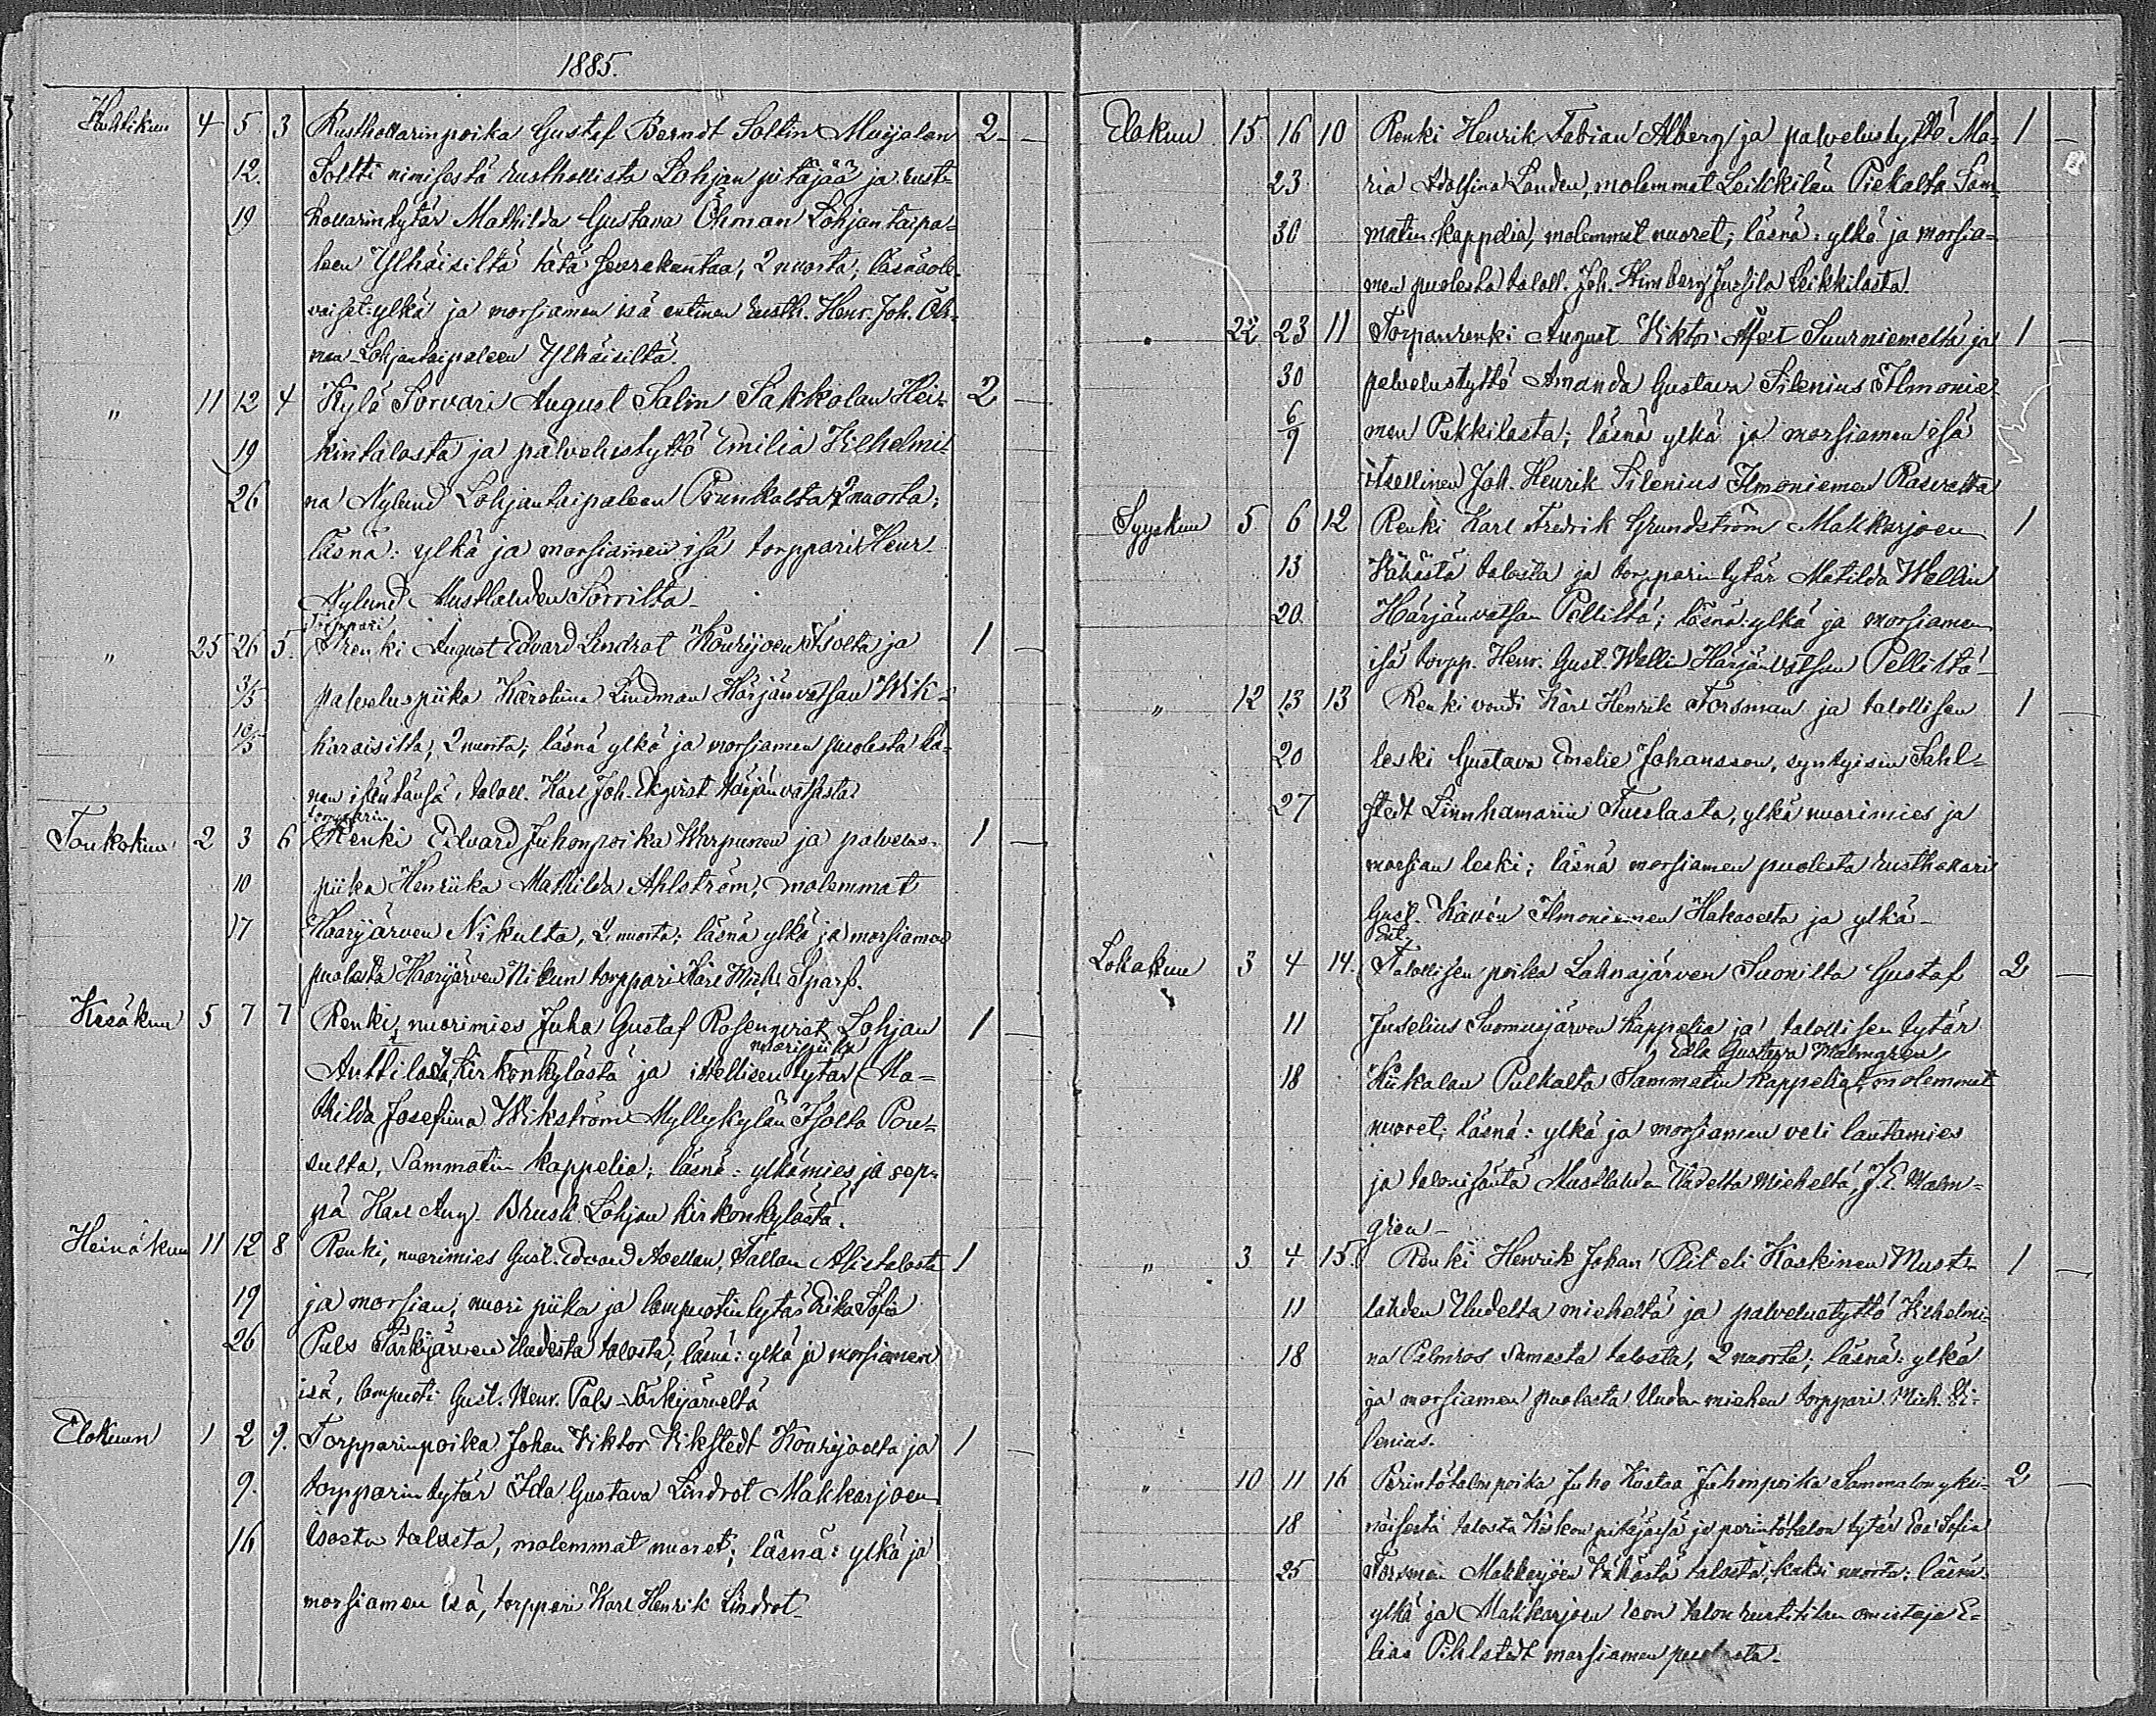 1885.
Huhtikuu 4 5 3 Rusthollarinpoika Gustaf Berndt Soltin Muijalan 2 —
12. Soltti nimisestä rusthollista Lohjan pitäjää ja rust-
19 hollarintytär Mathilda Gustava Öhman Lohjantaipa-
leen Ylhäisiltä tätä seurakuntaa, 2 nuorta; läsnäole-
vaiset: ylkä ja morsiamen isä entinen rusth. Henr. Joh. Öh-
man Lohjantaipaleen Ylhäisiltä.
" 11 12 4 Kylä Sorvari August Salin Sakkolan Hei- 2 —
19 kintalosta ja palvelustyttö Emilia Vilhelmi-
26 na Nylund Lohjantaipaleen Prunkalta 2 nuorta;
läsnä: ylkä ja morsiamen isä torppari Henr.
Nylund Mustlahden Sorrilta
Torppari
" 25 26 5. Renki August Edvard Lindrot Kourijoen Isolta ja 1 —
3/5 palveluspiika Karoliina Lindman Härjänvatsan Wik-
10/5 karaisilta, 2 nuorta; läsnä ylkä ja morsiamen puolesta hä-
nen isäntänsä, taloll. Karl Joh. Ekqvist Härjänvatsasta
torpparin
Toukokuu 2 3 6 Renki Edvard Juhonpoika Warpunen ja palvelus- 1 —
10 piika Henriika Mathilda Ahlström, molemmat
17 Haarjärven Nikulta, 2 nuorta; läsnä ylkä ja morsiamen
puolesta Haarjärven Nikun torppari Karl Mich. Sparf.
Kesäkuu 5 7 7 Renki, nuorimies Juha Gustaf Rosenqvist Lohjan 1 —
nuoripiika
Anttilasta, Kirkonkylästä ja itsellisen tytär Ma-
thilda Josefiina Wikström Myllykylän Isolta Pou-
sulta, Sammatin kappelia; läsnä: ylkämies ja sep-
pä Karl Aug. Brush Lohjan kirkonkylästä.
Heinäkuu 11 12 8 Renki, nuorimies Gust. Edvard Avellan, Tallan Alistalosta 1
19 ja morsian, nuori piika ja lampuotin tytär Erika Sofia
26 Pals Särkijärven Uudesta talosta; läsnä: ylkä ja morsiamen
isä, lampuoti Gust. Henr. Pals Särkijärveltä
Elokuun 1 2 9. Torpparinpoika Johan Viktor Vikstedt Kourijoelta ja 1 —
9. torpparin tytär Ida Gustava Lindrot Makkarjoen
16 Isosta talosta, molemmat nuoret; läsnä: ylkä ja
morsiamen isä, torppari Karl Henrik Lindrot
Elokuu 15 16 10 Renki Henrik Fabian Alberg ja palvelustyttö Ma- 1 —
23 ria Adolfina Landen, molemmat Leikkilän Piekalta Sam-
30 matin kappelia, molemmat nuoret; läsnä: ylkä ja morsia-
men puolesta taloll. Joh. Himberg Jussila Leikkilästa.
" 22 23 11 Torpanrenki August Viktor Suurniemeltä ja 1 —
30 palvelustyttö Amanda Gustava Silenius Ilmonie-
6/9 men Pukkilasta; läsnä ylkä ja morsiamen isä
itsellinen Joh. Henrik Silenius Ilmoniemen
Syyskuu 5 6 12 Renki Karl Fredrik Grundström Makkarjoen 1
13 Vähästä talosta ja torpparin tytär Matilda Wallin
20. Härjänvatsan Pelliltä; läsnä: ylkä ja morsiamen
isä torpp. Henr. Gust. Wallin Härjänvatsan Pelliltä
" 12 13 13 Renki vouti Karl Henrik Forsman ja talollisen 1 —
20 leski Gustava Emelie Johansson, syntyisin Sahl-
27 stedt Linnhamarin Tuulasta, ylkä nuorimies ja
morsian leski; läsnä morsiamen puolesta rusthollari
Gust. Kavén Ilmoniemen Hakaselta ja ylkä
Ent.
Lokakuu 3 4 14. Talollisen poika Lahnajärven Suonilta Gustaf 2 —
11 Juselius Suomusjärven kappelia ja talollisen tytär
Edla Gustava Malmgren
18 Kiikalan Pulkalta Sammatin kappelia, molemmat
nuoret; läsnä: ylkä ja morsiamen veli lautamies
ja talonisäntä Mustlahden Uudelta Mieheltä, J. E. Malm-
gren
" 3 4 15. Renki Henrik Johan Plit eli Koskinen Must- 1 —
11 lahden Uudelta mieheltä ja palvelustyttö Vilhelmi-
18 na Palmros samasta talosta, 2 nuorta; läsnä: ylkä
ja morsiamen puolesta Uuden miehen torppari Mich. Si-
lenius.
" 10 11 16 Perintötalonpoika Juho Kustaa Juhonpoika Sammalon yksi- 2 —
18 näisestä talosta Kiskon pitäjässä ja perintötalon tytär Eva Sofia
25 Forsman Makkarjoen Vähästä talosta, kaksi nuorta; läsnä:
ylkä ja Makkarjoen Ison talon rustitilan omistaja E-
lias Pihlstedt morsiamen puolesta.